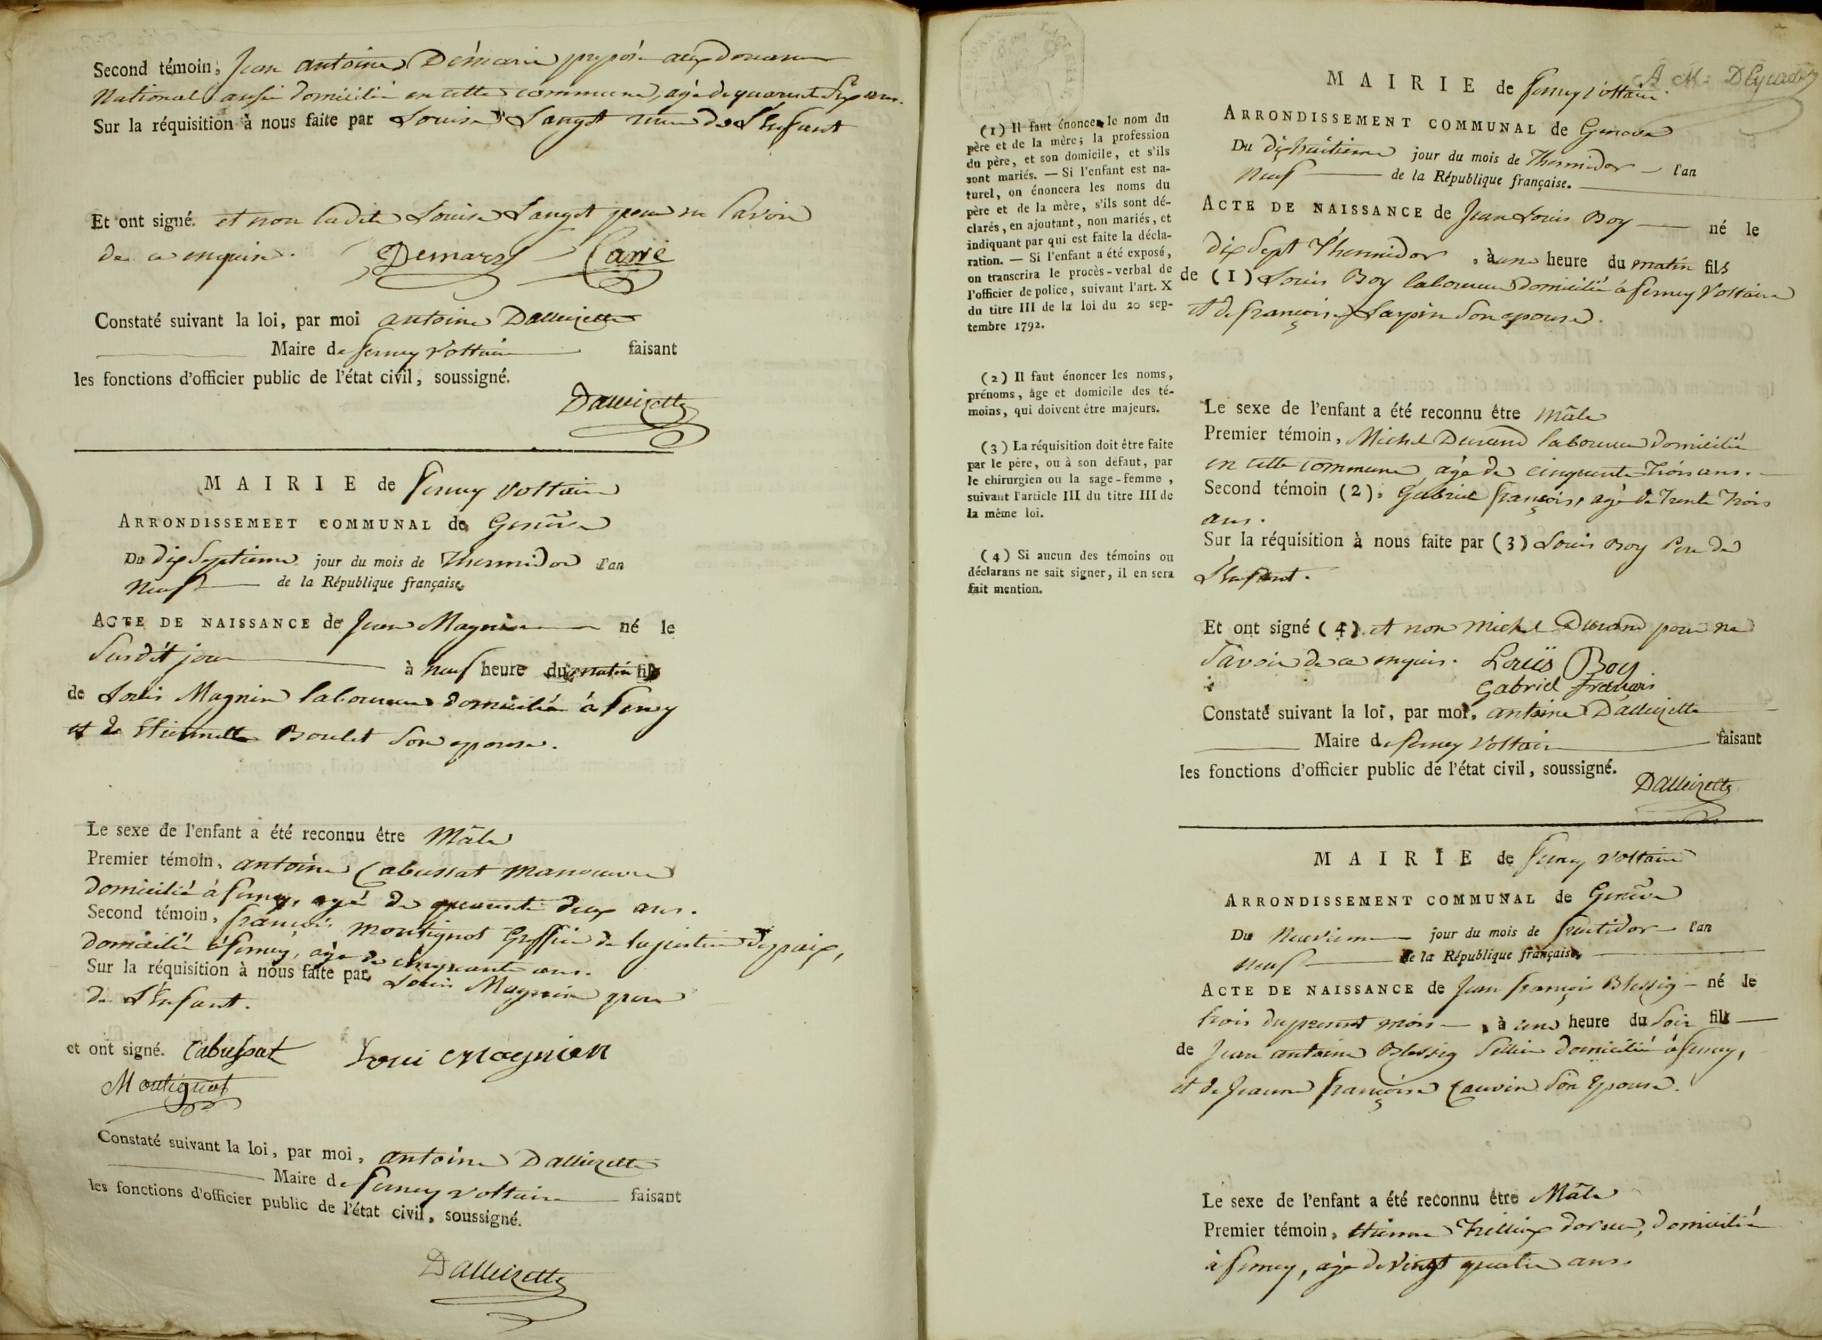 Second témoin, Jean Antoine Démarié préposé aux douanes
National aussi domicilié en cette commune, agé de quarente six ans.
Sur la réquisition à nous faite par Louise Langot mere de l'Enfant
Et ont signé. et non ladite Louise Langot pour ne savoir
de ce enquise. Demarest Carrié
Constaté suivant la loi, par moi antoine Dalleizette
Maire de ferney Voltaire faisant
les fonctions d'officier public de l'état civil, soussigné.
Dalleizette
MAIRIE de ferney Voltaire
ARRONDISSEMEET COMMUNAL de Genêve
Du dix Septieme jour du mois de Thermidor l'an
Neuf de la République française.
ACTE DE NAISSANCE de Jean Magnin né le
Susdit jour à neuf heure du matin fils
de Louis Magnin laboureur domicilié à ferney
et de Etiennette Boulet son epouse.
Le sexe de l'enfant a été reconnu être Mâle
Premier témoin, antoine Cabussat manoeuvre
domicilié à ferney, agé de quarente deux ans.
Second témoin, françois Moutignot Greffier de la justice de paix,
domicilié à ferney, agé de cinquante ans.
Sur la réquisition à nous faite par Louis Magnin pere
de l'Enfant.
et ont signé. Cabussat Loui Magnien
Moutignot
Constaté suivant la loi, par moi, antoine Dalleizette
Maire de ferney Voltaire faisant
les fonctions d'officier public de l'état civil, soussigné.
Dalleizette
(1) Il faut énoncer le nom du
père et de la mère; la profession
du père, et son domicile, et s'ils
sont mariés. — Si l'enfant est na-
turel, on énoncera les noms du
père et de la mère, s'ils sont dé-
clarés, en ajoutant, non mariés, et
indiquant par qui est faite la décla-
ration. — Si l'enfant a été exposé,
on transcrira le procès-verbal de
l'officier de police, suivant l'art. X
du titre III de la loi du 20 sep-
tembre 1792.
(2) Il faut énoncer les noms,
prénoms, âge et domicile des té-
moins, qui doivent être majeurs.
(3) La réquisition doit être faite
par le père, ou à son défaut, par
le chirurgien ou la sage-femme,
suivant l'article III du titre III de
la même loi.
(4) Si aucun des témoins ou
déclarans ne sait signer, il en sera
fait mention.
MAIRIE de ferney Voltaire
ARRONDISSEMENT COMMUNAL de Geneve
Du dix huitieme jour du mois de Thermidor l'an
Neuf de la République française.
ACTE DE NAISSANCE de Jean Louis Boy né le
dix Sept Thermidor, à une heure du matin fils
de (1) Louis Boy laboureur domicilié à ferney Voltaire
et de françoise Larpin son epouse.
Le sexe de l'enfant a été reconnu être Mâle
Premier témoin, Michel Durand laboureur domicilié
en cette commune agé de cinquente Trois ans.
Second témoin (2), Gabriel françois, agé de Trente Trois
ans.
Sur la réquisition à nous faite par (3) Louis Boy Pere de
l'Enfant.
Et ont signé (4) et non Michel Durand pour ne
Savoir de ce enquis. Louïs Boy
Gabriel françois
Constaté suivant la loi, par moi, antoine Dalleizette
Maire de ferney Voltaire faisant
les fonctions d'officier public de l'état civil, soussigné.
Dalleizette
MAIRIE de ferney Voltaire
ARRONDISSEMENT COMMUNAL de Genêve
Du Neuvieme jour du mois de fructidor l'an
Neuf de la République française,
ACTE DE NAISSANCE de Jean françois Blessig né le
trois du present mois, à une heure du Soir fils
de Jean antoine Blessig Sellier domicilié à ferney,
et de Jeanne françoise Cauvin son Epouse.
Le sexe de l'enfant a été reconnu être Mâle
Premier témoin, Etienne Trelliex doreur, domicilié
à ferney, agé de vingt quatre ans.